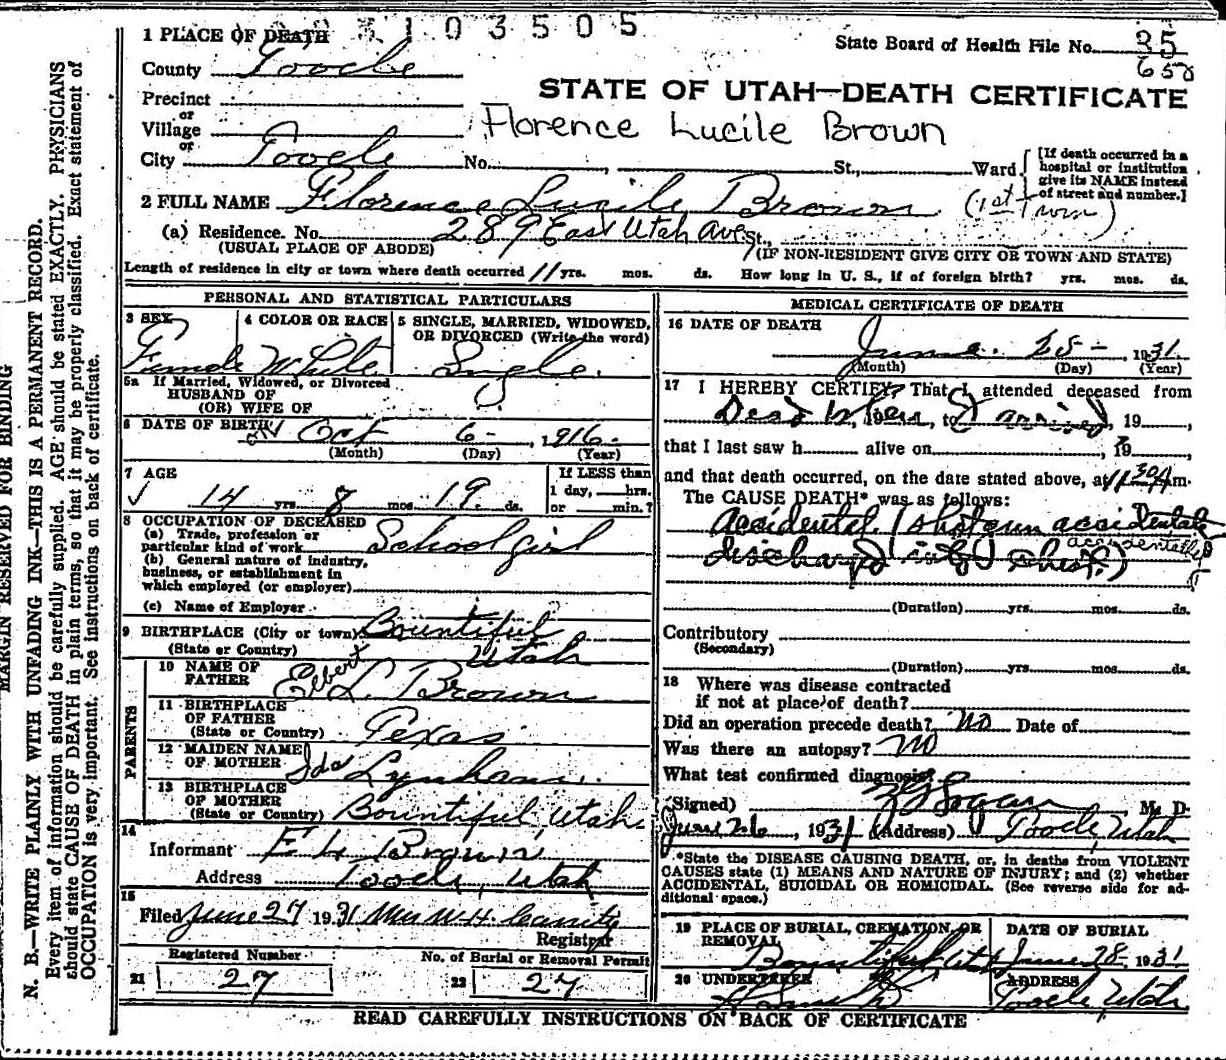 3103505
1 PLACE OF DEATH
State Board of Health File No. 35
County Tooele
658
Precinct
STATE OF UTAH—DEATH CERTIFICATE
or
Village
Florence Lucile Brown
or
City Tooele No. , St., Ward [If death occurred in a hospital or institution give its NAME instead of street and number.]
2 FULL NAME Florence Lucile Brown (1st twin)
(a) Residence. No. 289 East Utah Ave St.,
(USUAL PLACE OF ABODE) (IF NON-RESIDENT GIVE CITY OR TOWN AND STATE)
Length of residence in city or town where death occurred 11 yrs. mos. ds. How long in U. S., if of foreign birth? yrs. mos. ds.
PERSONAL AND STATISTICAL PARTICULARS
3 SEX
Female
4 COLOR OR RACE
White
5 SINGLE, MARRIED, WIDOWED,
OR DIVORCED (Write the word)
Single.
5a If Married, Widowed, or Divorced
HUSBAND OF
(OR) WIFE OF
6 DATE OF BIRTH Oct 6 - , 1916.
(Month) (Day) (Year)
7 AGE
14 yrs 8 mos 19 ds.
If LESS than
1 day, hrs.
or min.?
8 OCCUPATION OF DECEASED
(a) Trade, profession or
particular kind of work School girl
(b) General nature of industry,
business, or establishment in
which employed (or employer)
(c) Name of Employer
9 BIRTHPLACE (City or town) Bountiful
(State or Country) Utah
PARENTS
10 NAME OF
FATHER Elbert L. Brown
11 BIRTHPLACE
OF FATHER
(State or Country) Texas
12 MAIDEN NAME
OF MOTHER Ida
13 BIRTHPLACE
OF MOTHER
(State or Country) Bountiful, Utah.
14
Informant E L Brown
Address Tooele, Utah
15
Filed June 27 1931 Mrs W. H.
Registrar
Registered Number
21 27
No. of Burial or Removal Permit
22 27
MEDICAL CERTIFICATE OF DEATH
16 DATE OF DEATH
June 25 - , 1931.
(Month) (Day) (Year)
17 I HEREBY CERTIFY, That I attended deceased from
Dead when , 19 , to I arrived, 19 ,
that I last saw h alive on , 19
and that death occurred, on the date stated above, at 11 30 A m.
The CAUSE DEATH* was as follows:
Accidental (shotgun accidentally
accidentally
discharged into chest.)
(Duration) yrs. mos. ds.
Contributory
(Secondary)
(Duration) yrs. mos. ds.
18 Where was disease contracted
if not at place of death?
Did an operation precede death? No Date of
Was there an autopsy? No
What test confirmed diagnosis?
(Signed) M. D.
June 26, 1931 (Address) Tooele, Utah
*State the DISEASE CAUSING DEATH, or, in deaths from VIOLENT
CAUSES state (1) MEANS AND NATURE OF INJURY; and (2) whether
ACCIDENTAL, SUICIDAL OR HOMICIDAL. (See reverse side for ad-
ditional space.)
19 PLACE OF BURIAL, CREMATION, OR
REMOVAL
Bountiful Utah
DATE OF BURIAL
June 28 1931
20 UNDERTAKER
ADDRESS
Tooele, Utah
READ CAREFULLY INSTRUCTIONS ON BACK OF CERTIFICATE
MARGIN RESERVED FOR BINDING
N. B.—WRITE PLAINLY WITH UNFADING INK—THIS IS A PERMANENT RECORD.
Every item of information should be carefully supplied. AGE should be stated EXACTLY. PHYSICIANS
should state CAUSE OF DEATH in plain terms, so that it may be properly classified. Exact statement of
OCCUPATION is very important. See instructions on back of certificate.